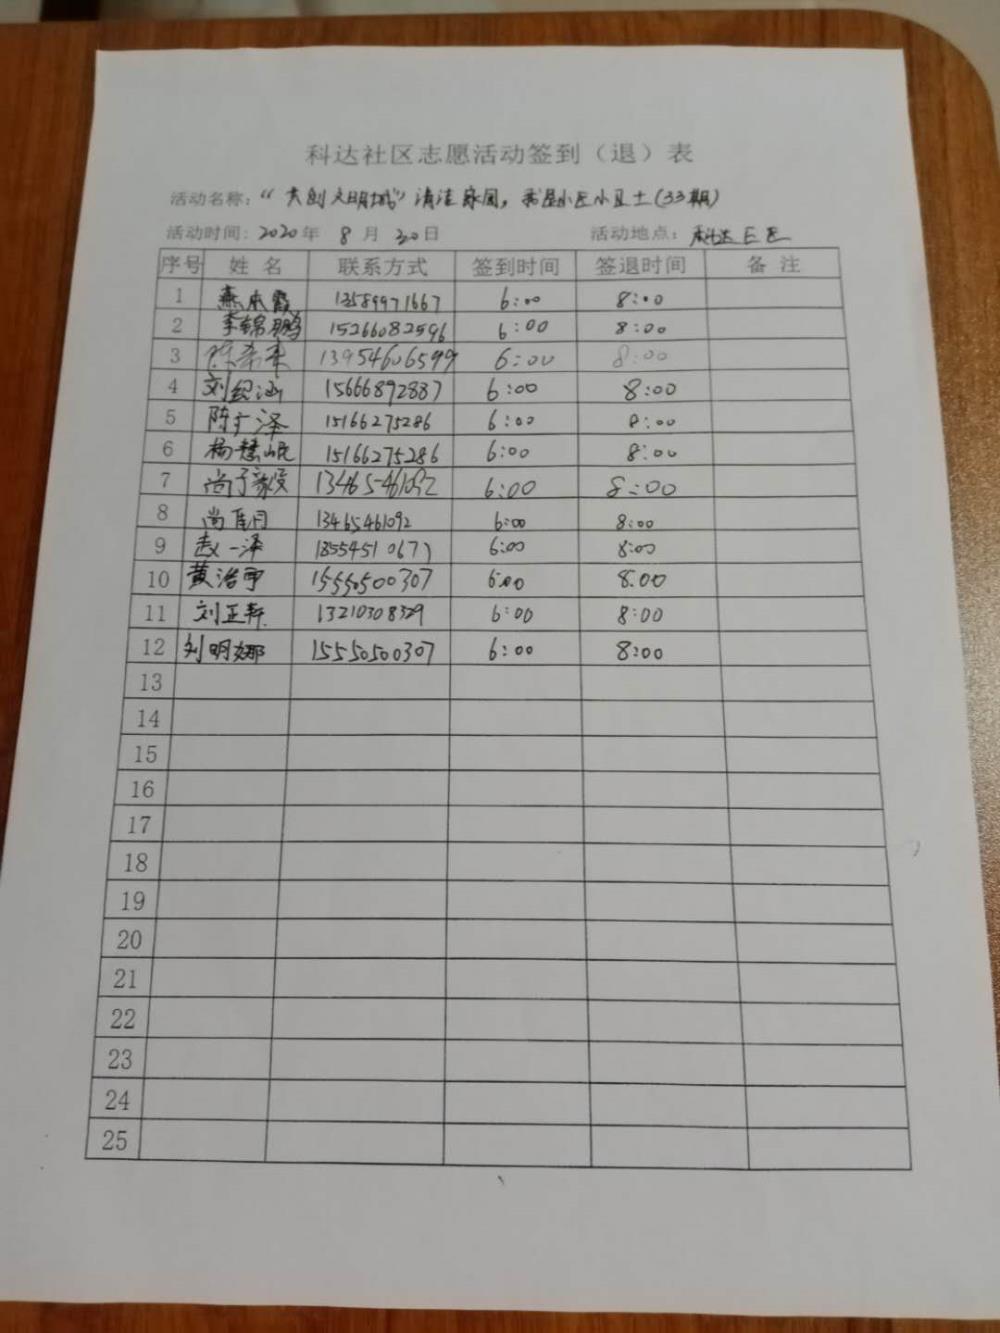 科达社区志愿活动签到（退）表
活动名称：“共创文明城”清洁家园，我是小区小卫士（33期）
活动时间：2020年 8 月 30日 活动地点：科达E区
序号 姓 名 联系方式 签到时间 签退时间 备 注
1 燕 霞 13589971667 6:00 8:00
2 李锦鹏 15266082596 6:00 8:00
3 陈希来 13954606599 6:00 8:00
4 刘纪涵 15666892887 6:00 8:00
5 陈广泽 15166275286 6:00 8:00
6 杨慧岷 15166275286 6:00 8:00
7 尚子毅 13465461092 6:00 8:00
8 尚 13465461092 6:00 8:00
9 赵一泽 6:00 8:00
10 黄浩 15550500307 6:00 8:00
11 刘正轩 13210308329 6:00 8:00
12 刘明娜 15550500307 6:00 8:00
13
14
15
16
17
18
19
20
21
22
23
24
25